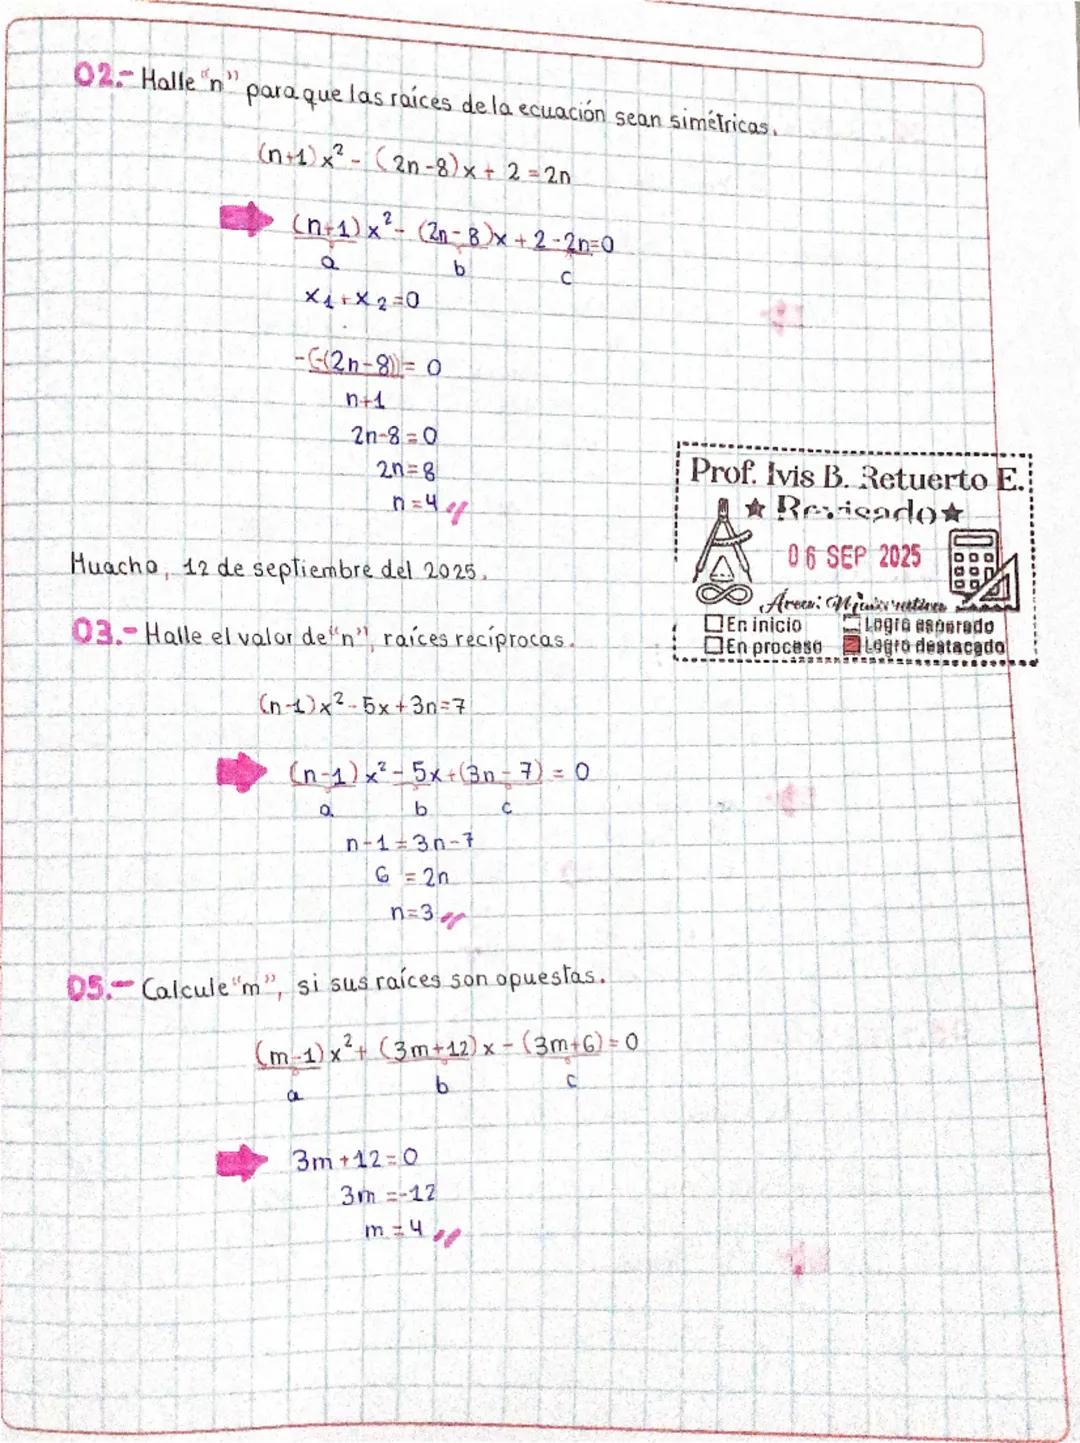 02.- Halle "n" para que las raíces de la ecuación sean simétricas.
(n+1)x² - (2n-8)x + 2 = 2n
(n+1)x² - (2n-8)x + 2-2n=0
a b c
x₁+x₂=0
-(-(2n-8)) = 0
n+1
2n-8=0
2n=8
n=4
Prof. Ivis B. Retuerto E.
Revisado
06 SEP 2025
Área:
En inicio Logro esperado
En proceso Logro destacado
Huacho, 12 de septiembre del 2025.
03.- Halle el valor de "n", raíces recíprocas.
(n-1)x²-5x+3n=7
(n-1)x²-5x+(3n-7) = 0
a b c
n-1=3n-7
6 = 2n
n=3
05.- Calcule "m", si sus raíces son opuestas.
(m-1)x²+(3m+12)x-(3m+6)=0
a b c
3m+12=0
3m =-12
m =4